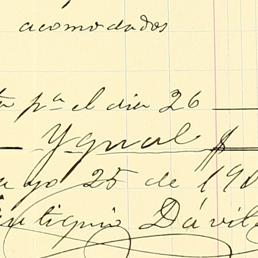 acomodados
ta pa el dia 26
Ygual $
yo 25 de 190
Eutiquio Dávil